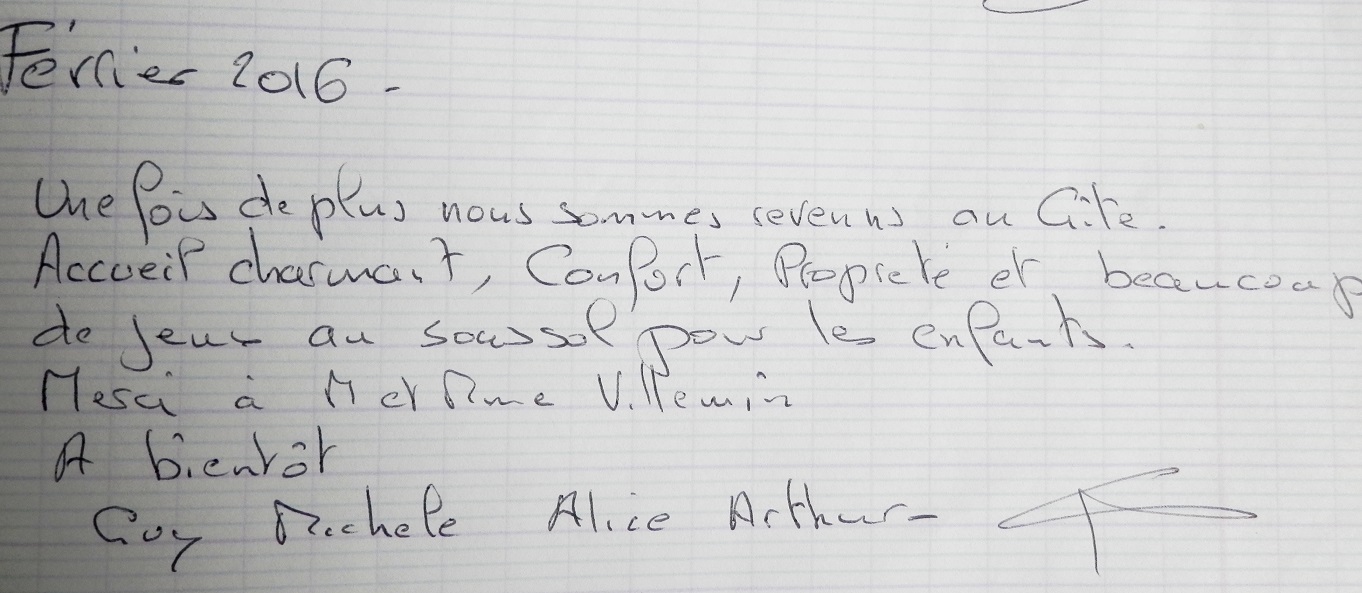 Février 2016 -
Une fois de plus nous sommes revenus au Gîte.
Accueil charmant, Confort, Propreté et beaucoup
de jeux au soussol pour les enfants.
Merci à M et Mme Villemin
A bientôt
Guy Michele Alice Arthur -